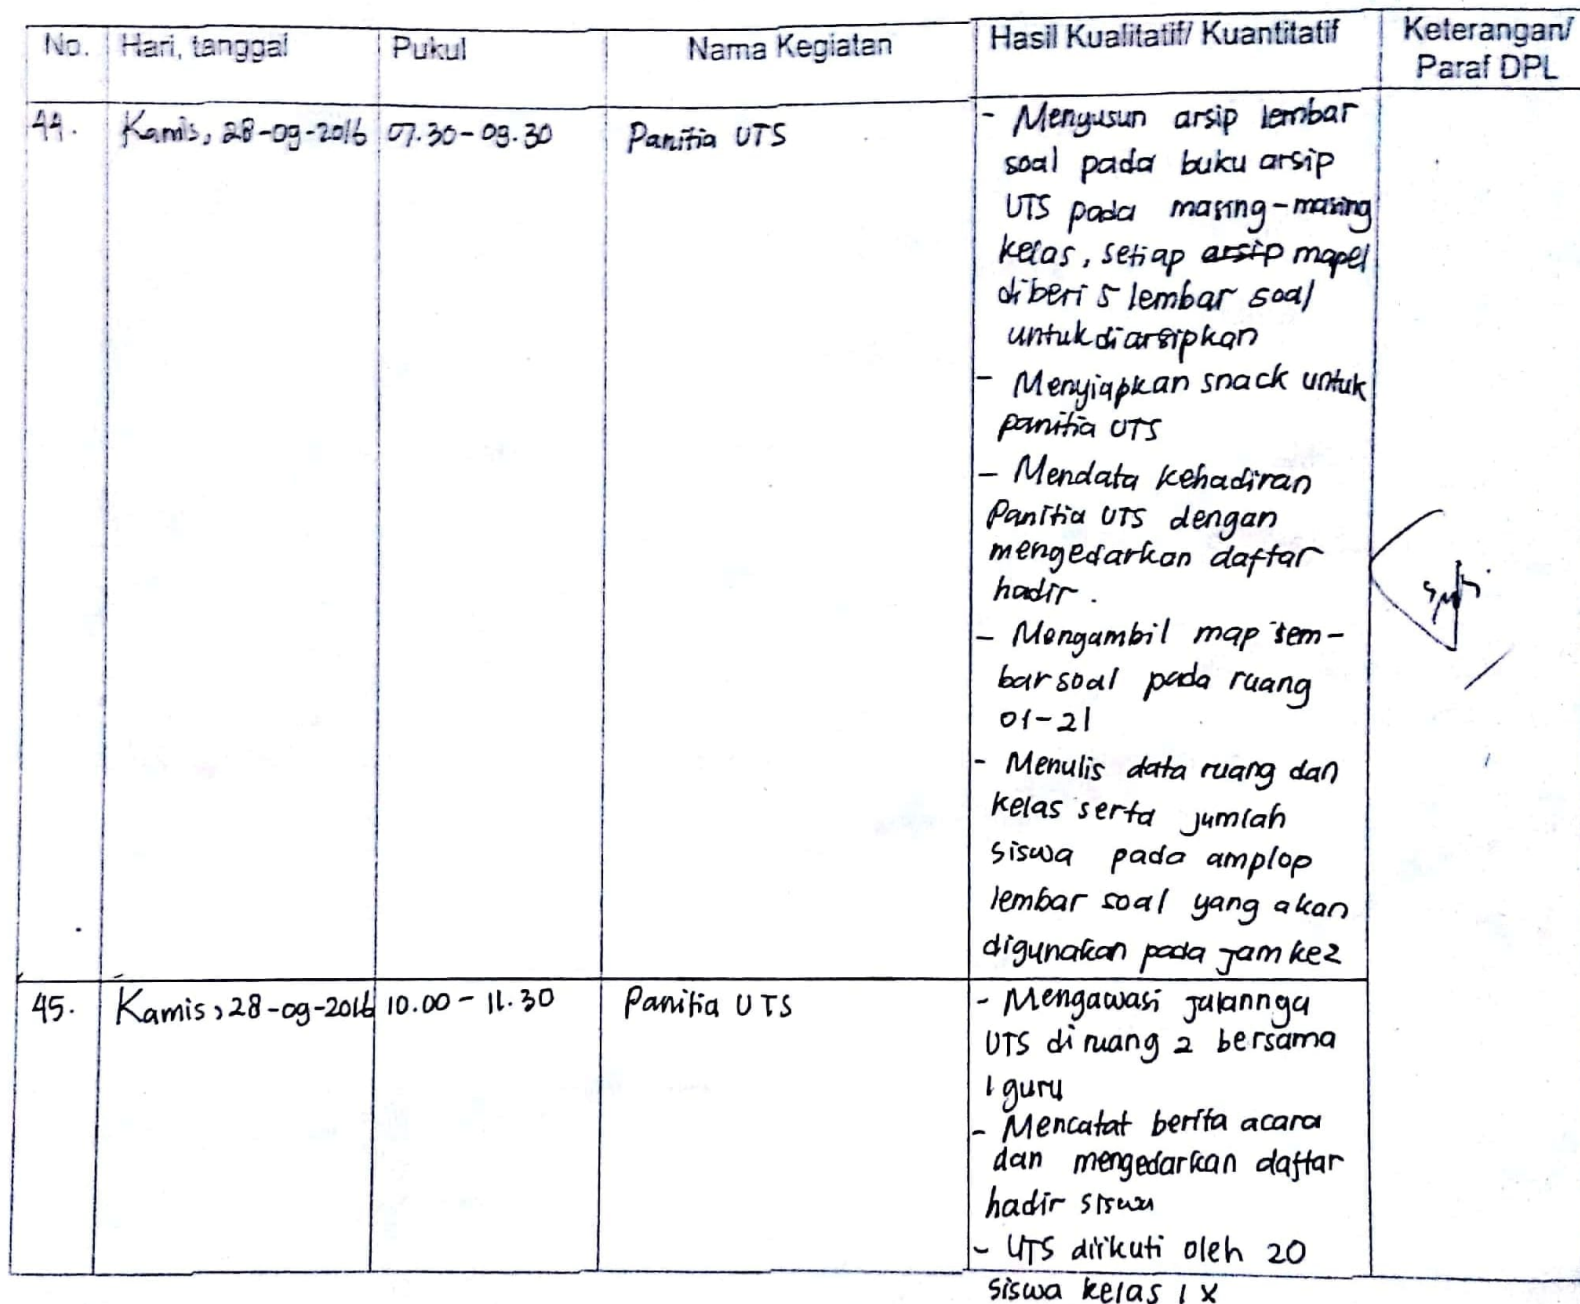 No. Hari, tanggal Pukul Nama Kegiatan Hasil Kualitatif/ Kuantitatif Keterangan/
Paraf DPL
44. Kamis, 28-09-2016 07.30-09.30 Panitia UTS - Menyusun arsip lembar
soal pada buku arsip
UTS pada masing-masing
kelas, setiap arsip mapel
diberi 5 lembar soal
untuk diarsipkan
- Menyiapkan snack untuk
panitia UTS
- Mendata kehadiran
Panitia UTS dengan
mengedarkan daftar
hadir.
- Mengambil map lem-
bar soal pada ruang
01-21
- Menulis data ruang dan
kelas serta jumlah
siswa pada amplop
lembar soal yang akan
digunakan pada jam ke2
45. Kamis, 28-09-2016 10.00-11.30 Panitia UTS - Mengawasi jalannya
UTS di ruang 2 bersama
1 guru
- Mencatat berita acara
dan mengedarkan daftar
hadir siswa
- UTS diikuti oleh 20
siswa kelas IX